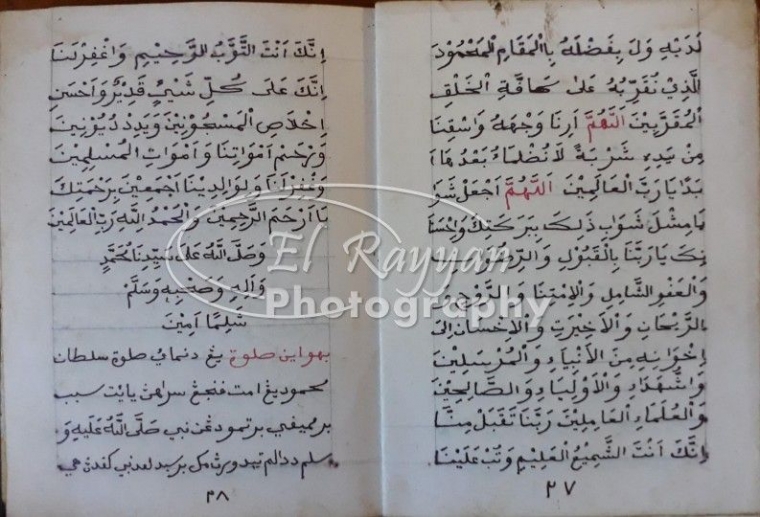 لَدَيْهِ وَلَ بِفَضْلِهِ بِاالْمَقَامِ الْمَحْمُوْدِ
الَّذِيْ نُقَرِّبُهُ عَلَى كَافَّةِ الْخَلْقِ
الْمُقَرَّبِيْنَ اَللّٰهُمَّ اَرِنَا وَجْهَهُ وَاسْقِنَا
مِنْ يَدِهِ شَرْبَةً لَا نُضْلَمَاءُ بَعْدُهَا اَ
بَدًا يَا رَبَّ الْعَالَمِيْنَ اَللّٰهُمَّ اجْعَلْ ثَوَا
نَا مِثْلَ ثَوَابِ ذَلِكَ بِبَرَكَتِكَ وَاِحْسَا
نِكَ يَا رَبَّنَا بِالْقَبُوْلِ وَالرِّضْوَانِ
وَالْعَفْوِ الشَّامِلِ وَالْاِمْتِنَا وَالرَّوْحِ وَ
الرَّيْحَانِ وَالْاَخِيْرَتِ وَالْاِحْسَانِ اِلَى
اِخْوَانِهِ مِنَ الْاَنْبِيَاءِ وَالْمُرْسَلِيْنَ
وَالشُّهَدَاءِ وَالْاَوْلِيَاءِ وَالصَّالِحِيْنَ
وَالْعُلَمَاءِ الْعَامِلِيْنَ رَبَّنَا تَقَبَّلْ مِنَّا
اِنَّكَ اَنْتَ السَّمِيْعُ الْعَلِيْمُ وَتُبْ عَلَيْنَا
٢٧
اِنَّكَ اَنْتَ التَّوَّبُ الرَّحِيْمِ وَاغْفِرْ لَنَا
اِنَّكَ عَلَى كُلِّ شَيْئٍ قَدِيْرٌ وَاَحْسَنِ
اِخْلَاصِ الْمَسْجُوْنِيْنَ وَيَدِدْ دُيُوْنِيْنَ
وَرْحَمْ اَمْوَاتِنَا وَاَمْوَاتِ الْمُسْلِمِيْنَ
وَغْفِرْلَنَا وَلِوَالِدِيْنَا اَجْمَعِيْنَ بِرَحْمَتِكَ
يَا اَرْحَمَ الرَّحِمِيْنَ وَالْحَمْدُ اللّٰهِ رَبِّ الْعَالَمِيْنَ
وَصَلَّى اللّٰهُ عَلَى سَيِّدِنَا مُحَمَّدٍ
وَاٰلِهِ وَصَحْبِهِ وَسَلَّمْ
سَلِمًا اَمِيْنَ
بهوا اين صلوة يڠ دنماي صلوة سلطان
محمود يڠ امت
سبب
برتمو دڠن نبي صَلَّى اللّٰهُ عَلَيْهِ وَ
سلم ددالم
٢٨
El Rayyan
Photography